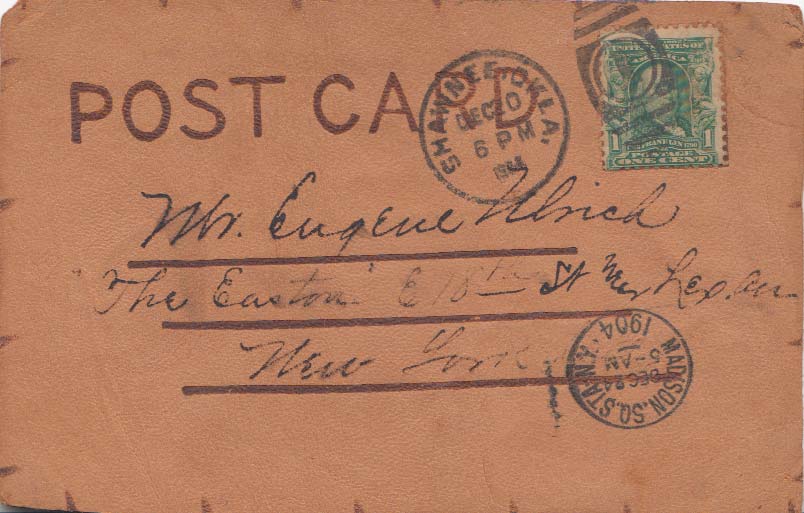 POST CARD
SHAWNEE, OKLA.
DEC 20
6 PM
1904
UNITED STATES OF AMERICA
1 FRANKLIN 1790 1
POSTAGE
ONE CENT
Mr. Eugene Ulrich
"The Easton" E 18th St nr Lex. av
New York
MADISON SQ. STA. N.Y.
DEC 24
5-AM
1904